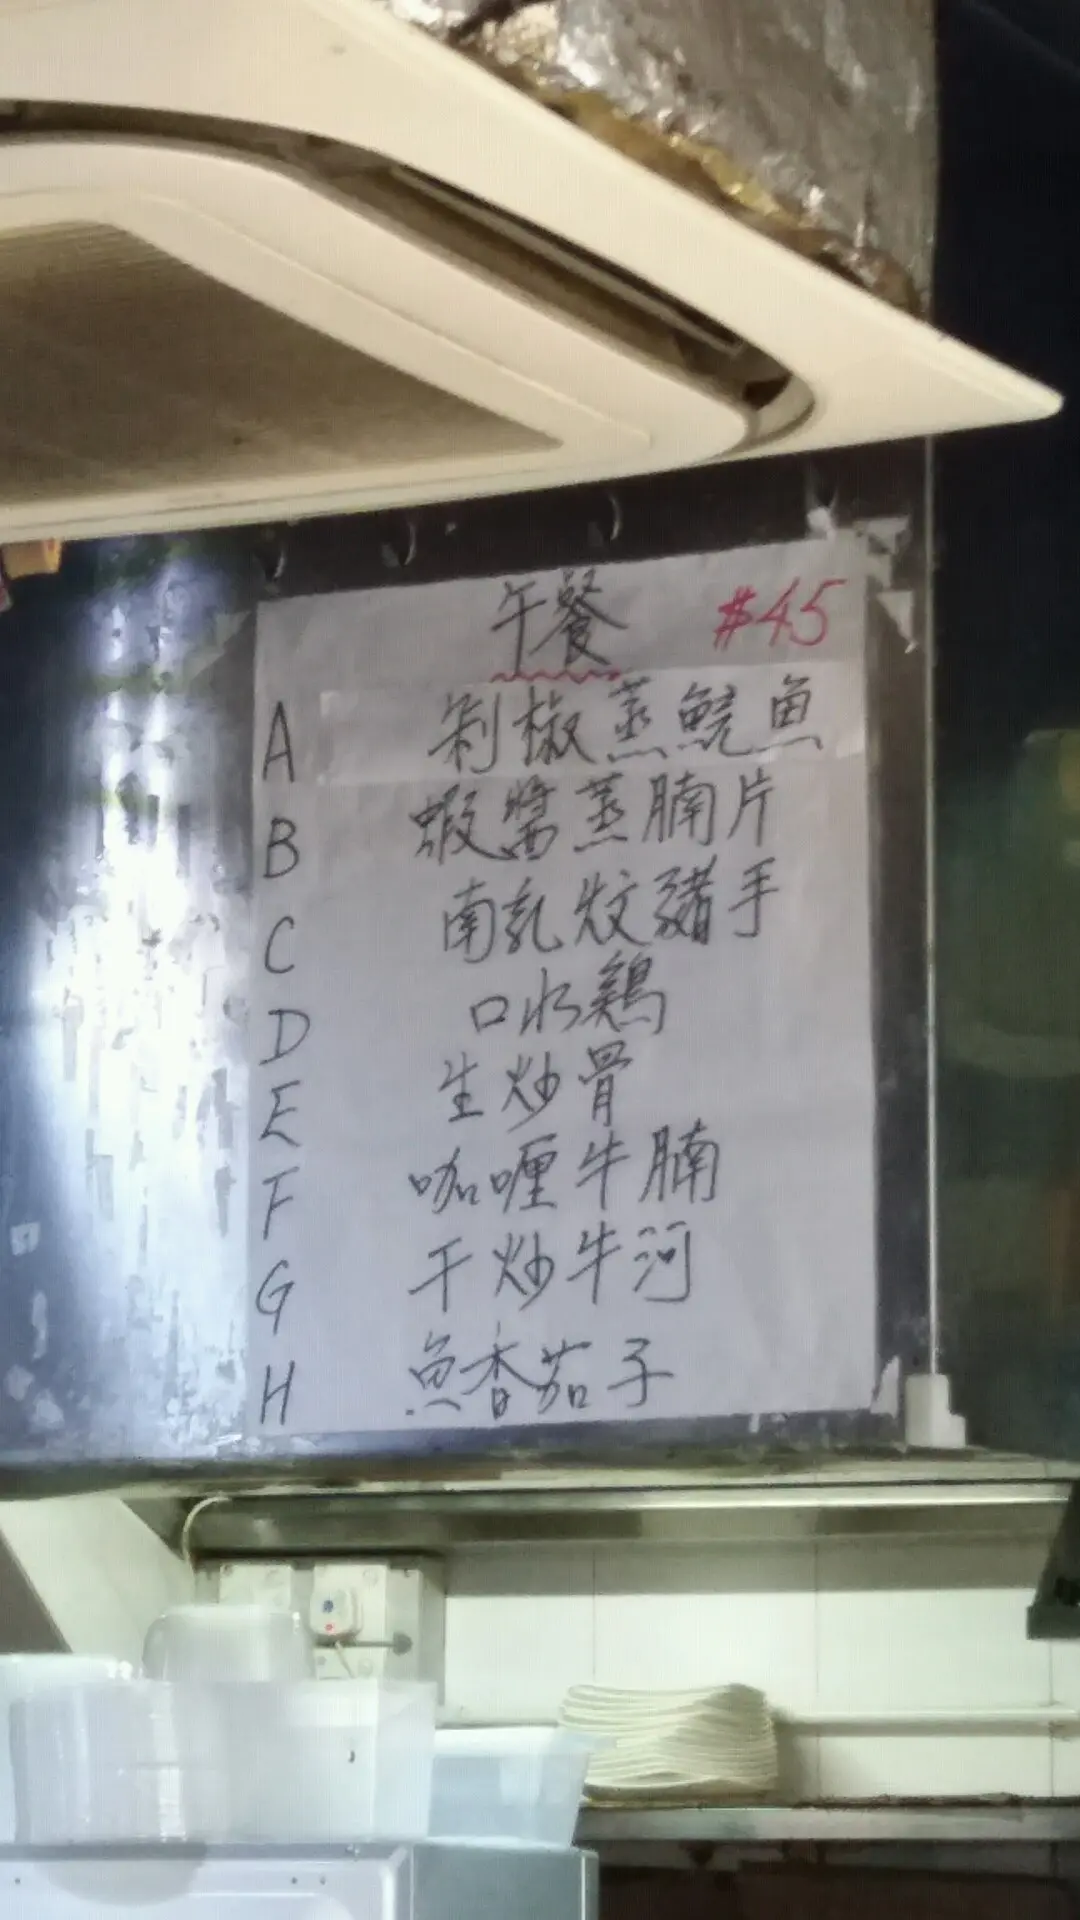 午餐 #45
A 剁椒蒸鯇魚
B 蝦醬蒸腩片
C 南乳炆豬手
D 口水鷄
E 生炒骨
F 咖喱牛腩
G 干炒牛河
H 魚香茄子